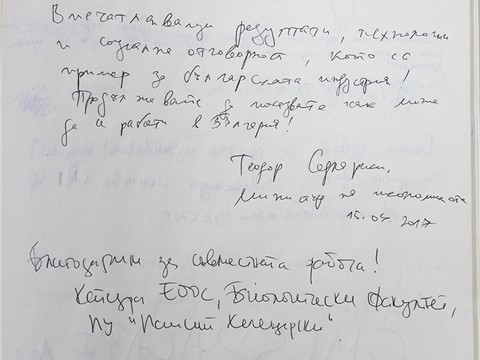 Впечатляващи резултати, технологии
и социална отговорност, които са
пример за българската индустрия!
Продължавайте да показвате как може
да се работи в България!
Теодор Седларски,
Министър на икономиката
15.04.2017
Благодарим за съвместната работа!
Катедра ЕООС, Биологически факултет,
ПУ "Паисий Хилендарски".